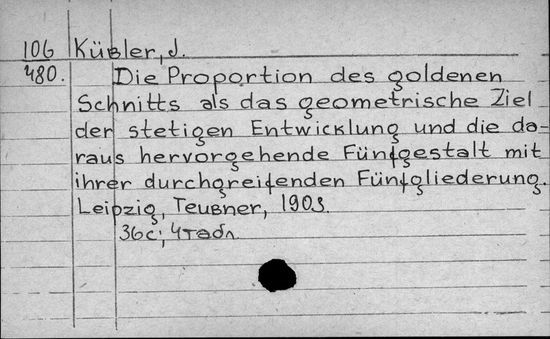 106 Küßler, J.
480. Die Proportion des goldenen
Schnitts als das geometrische Ziel
der stetigen Entwicklung und die da-
raus hervorgehende Fünfgestalt mit
ihrer durchgreifenden Fünfgliederung.
Leipzig, Teußner, 1909.
36c; 4 табл.